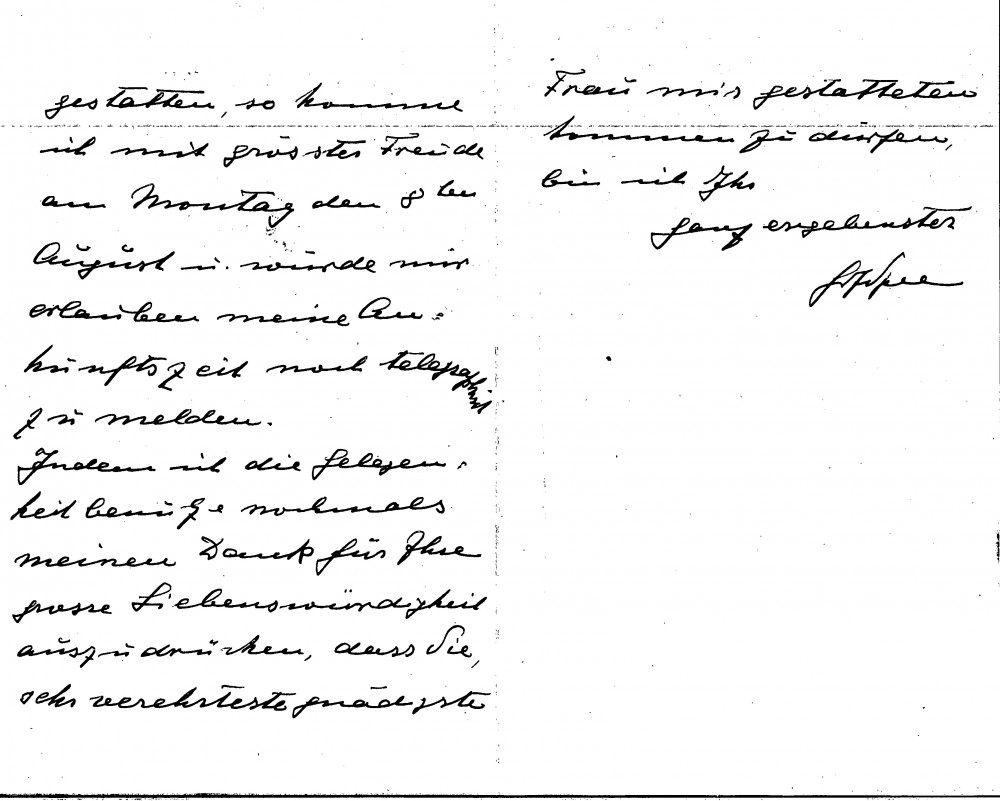 gestatten, so komme
ich mit grösster Freude
am Montag den 8ten
August u. würde mir
erlauben meine An-
kunftszeit noch telegraphisch
zu melden.
Indem ich die Gelegen-
heit benutze nochmals
meinen Dank für Ihre
grosse Liebenswürdigkeit
auszudrücken, dass Sie,
sehr verehrteste gnädigste
Frau mir gestatteten
kommen zu dürfen,
bin ich Ihr
ganz ergebenster